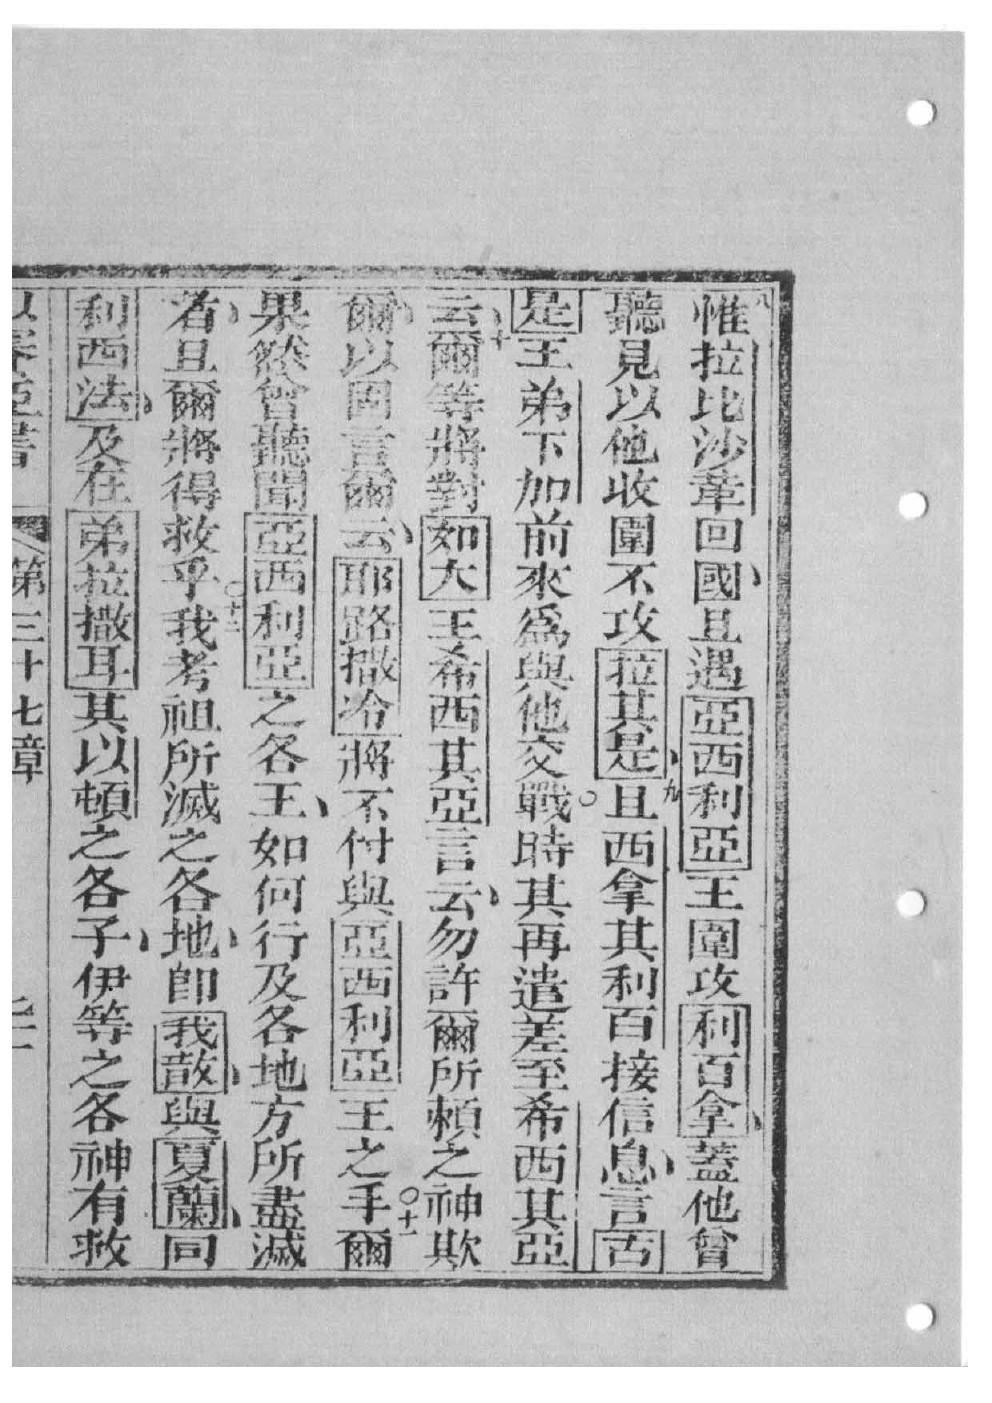 八惟拉比沙韋回國且遇亞西利亞王圍攻利百拿蓋他曾
聽見以他收圍不攻拉其是九且西拿其利百接信息言古
是王弟下加前來為與他交戰○時其再遣差至希西其亞
云十爾等將對如大王希西其亞言云勿許爾所賴之神欺
爾以固言爾云耶路撒冷將不付與亞西利亞王之手○十一爾
果然曾聽聞亞西利亞之各王如何行及各地方所盡滅
者且爾將得救乎○十二我考祖所滅之各地即我散與夏蘭同
利西法及在弟拉撒耳其以頓之各子伊等之各神有救
以賽亞書 第三十七章